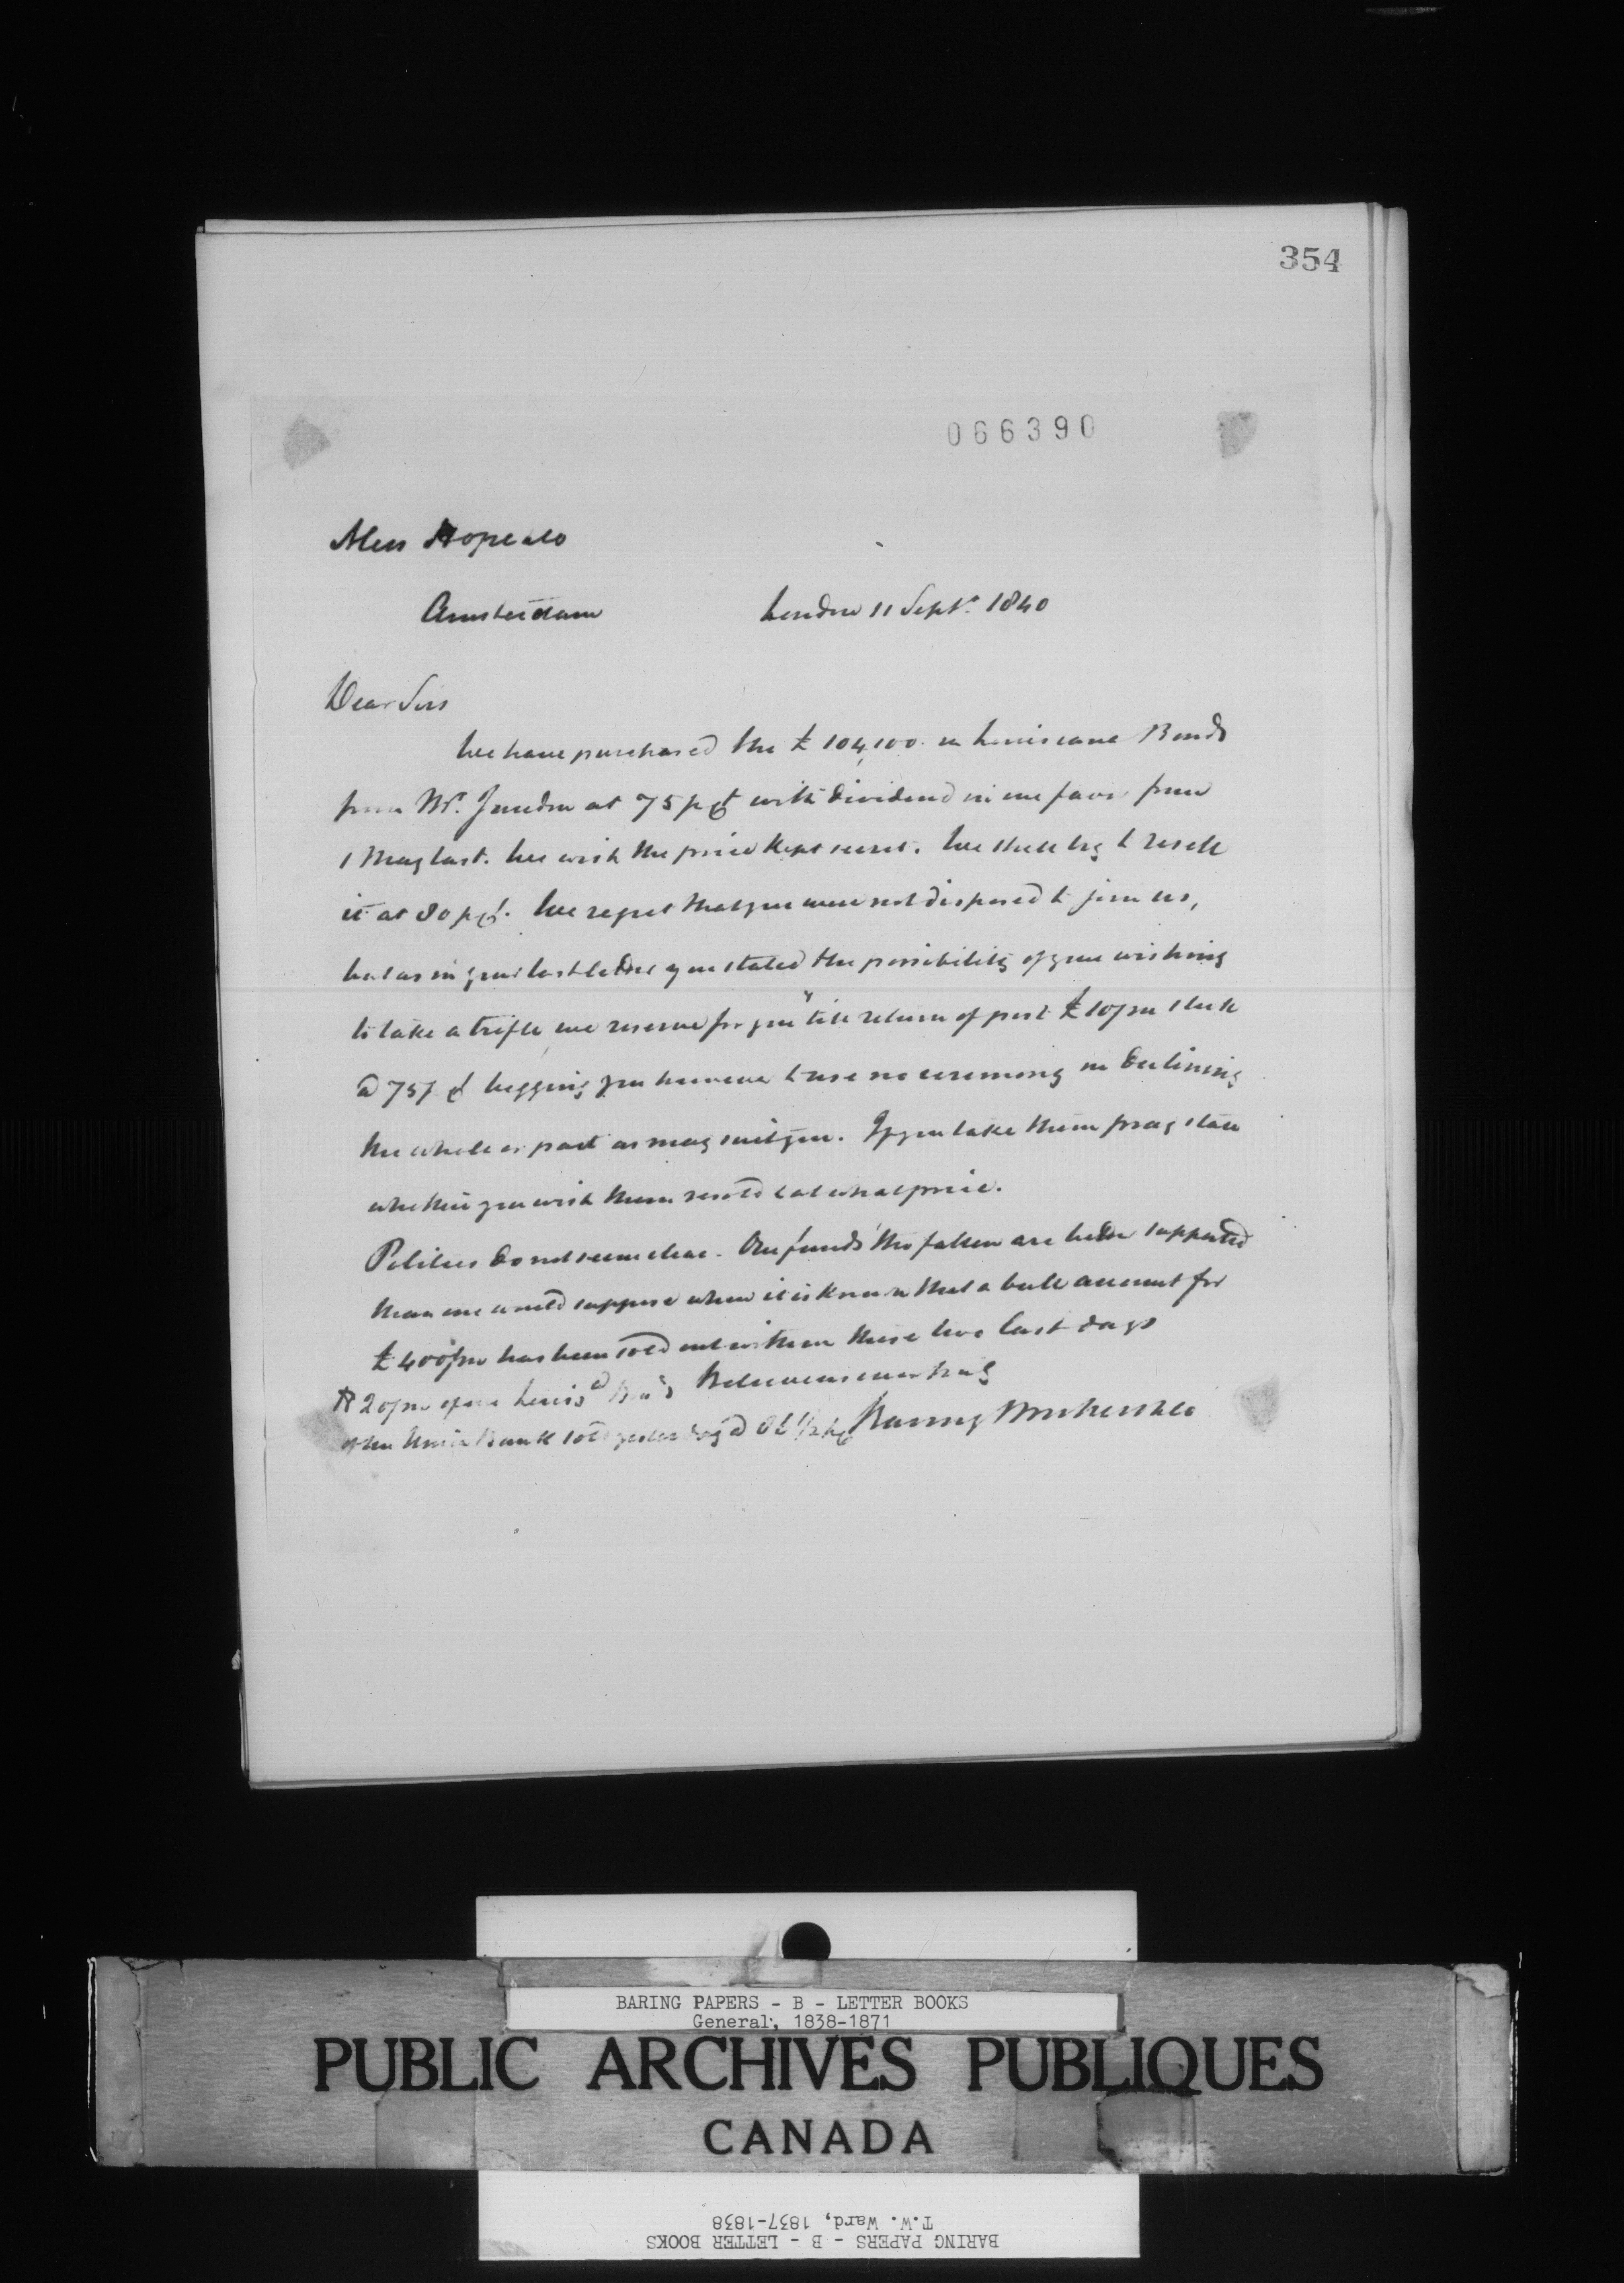 354
066390
Mess Hope & Co
Amsterdam London 11 Septr. 1840
Dear Sirs
We have purchased the £ 104,100 in Louisiana Bonds
from Mr. Jaudon at 75 p ct with dividend in our favor from
1 May last. We wish the price kept secret. We shall try to resell
it at 80 p ct. We regret that you were not disposed to join us,
but as in your last letter you stated the possibility of your wishing
to take a trifle, we reserve for you till return of post £ 10/m stock
@ 75 p ct begging you however to use no ceremony in declining
the whole or part as may suit you. If you take them pray state
whether you wish them resold & at what price.
Politics do not seem clear. Our funds tho' fallen are better supported
than one would suppose when it is known that a bull account for
£ 400/m has been sold out within these two last days
£ 20/m Louisa Bds Believe us ever truly
of the Union Bank sold yesterday @ 1/2 p ct Baring Brothers & Co
BARING PAPERS - B - LETTER BOOKS
General, 1838-1871
PUBLIC ARCHIVES PUBLIQUES
CANADA
T.W. Ward, 1837-1838
BARING PAPERS - B - LETTER BOOKS